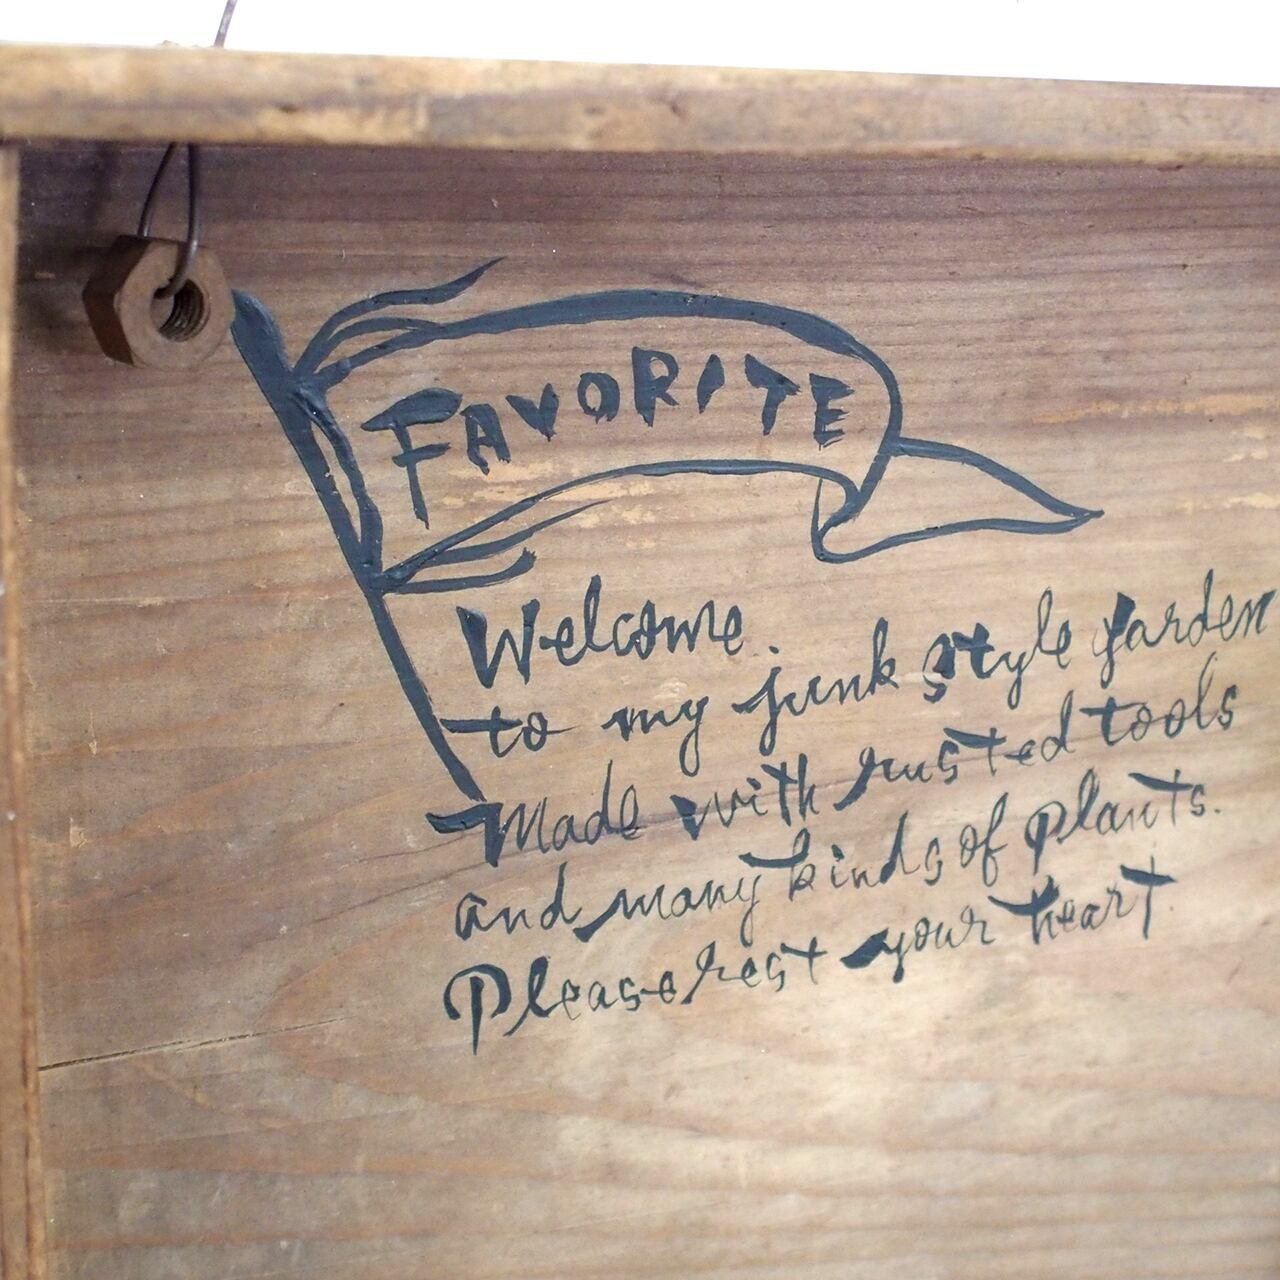 FAVORITE
Welcome.
to my junk style garden
Made with rusted tools
and many kinds of plants.
Please rest your heart.